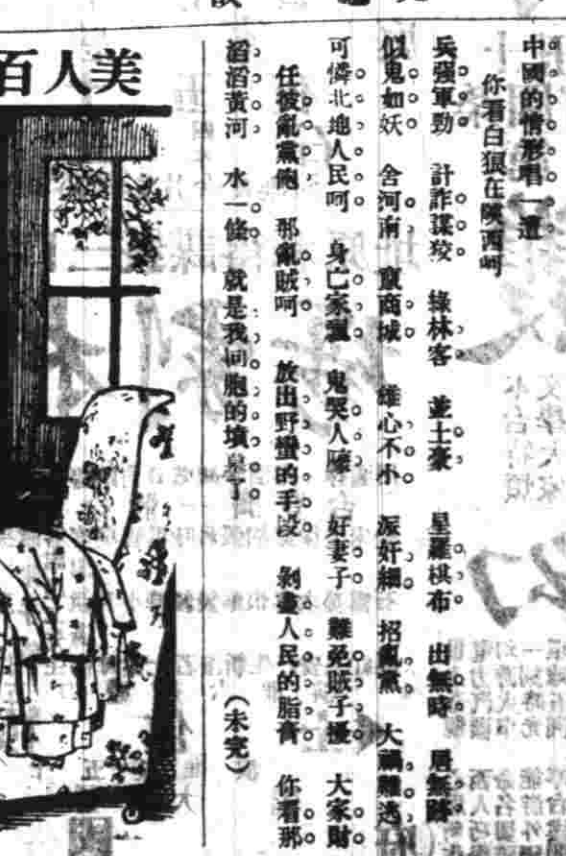 中國的情形唱一遭
你看白狼在陝西呵
兵强軍勁 計詐謀狡 綠林客 並土豪 星羅棋布 出無時 居無跡
似鬼如妖 舍河南 竄商城 雄心不小 派奸細 招亂黨 大禍難逃
可憐北地人民呵 身亡家 鬼哭人嚎 好妻子 難免賊子擾 大家財
任彼亂黨飽 那亂賊呵 放出野蠻的手段 剝盡人民的脂膏 你看那
滔滔黃河 水一條 就是我同胞的墳 了
(未完)
美人百